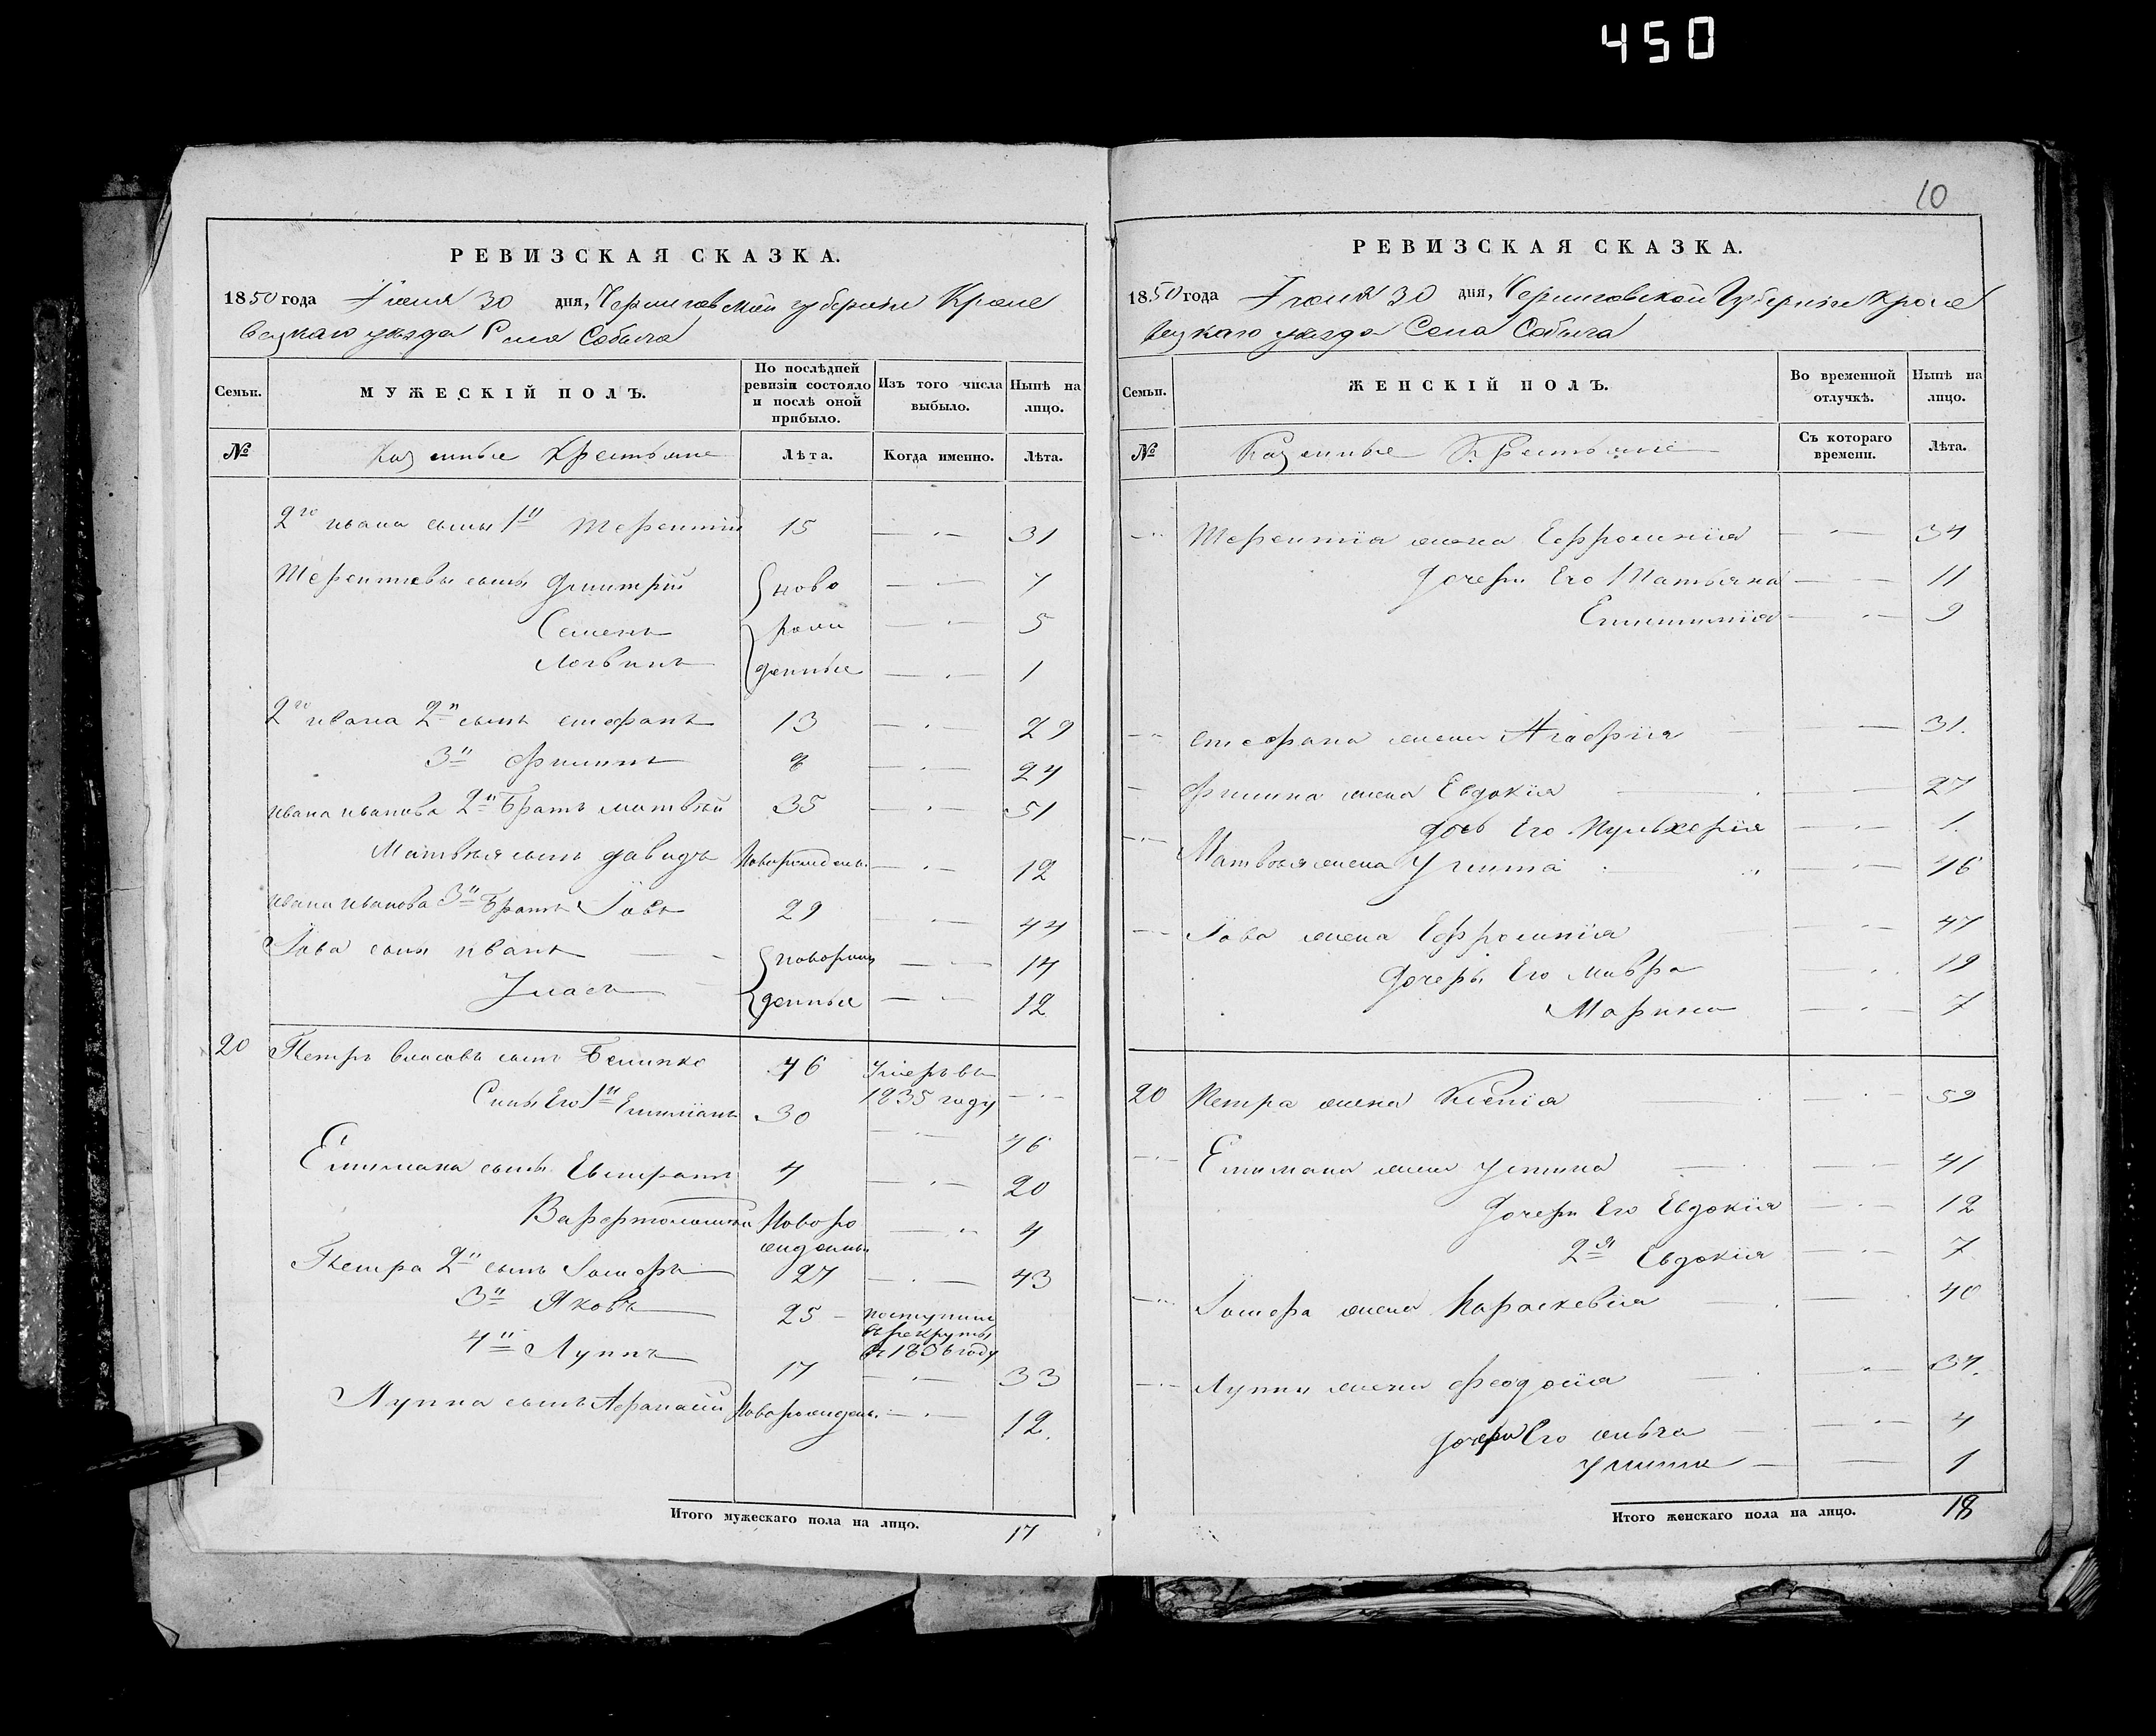 450
РЕВИЗСКАЯ СКАЗКА.
1850 года Іюня 30 дня, Черниговской губерніи Кроле
вецкаго уезда Села Собыча
Семьи.
МУЖЕСКІЙ ПОЛЪ.
По послѣдней ревизіи состояло и послѣ оной прибыло.
Изъ того числа выбыло.
Нынѣ на лицо.
№
Казенные Крестьяне
Лѣта.
Когда именно.
Лѣта.
2го ивана сыны 1й Терентий 15 31
Терентиевы сыны Дмитрий ново 7
Семенъ рож 5
Логвинъ денные 1
2го ивана 2й сынъ стефанъ 13 29
3й Филипъ 8 24
ивана иванова 2й Братъ матвей 35 51
Матвея сынъ давидъ Новорожденъ. 12
ивана иванова 3й Братъ Іовъ 29 44
Іова сыны иванъ новорож 14
Власъ денные 12
20 Петръ власовъ сынъ 46 Умеръ въ
1835 году
Сыны Его 1й Емилианъ 30 46
Емилиана сыны Евстратъ 4 20
Новоро 4
жденны
Петра 2й сынъ 27 43
3й Яковъ 25 поступилъ
в рекруты
въ 1836 году
4й Луппъ 17 33
Луппа сынъ Афанасий Новорожденъ. 12.
Итого мужескаго пола на лицо. 17
10
РЕВИЗСКАЯ СКАЗКА.
1850 года Іюня 30 дня, Черниговской Губерніи Кроле
вецкаго уезда Села Собыча
Семьи.
ЖЕНСКІЙ ПОЛЪ.
Во временной отлучкѣ.
Нынѣ на лицо.
№
Казенные Крестьяне
Съ котораго времени.
Лѣта.
Терентия жена Ефросиния 34
Дочери Его Татьяна 11
9
стефана жена Агафия 31.
Филипа жена Евдокия 27
дочь Его Пульхерия 1.
Матвея жена Улита 46
Іова жена Ефросиния 47
Дочери Его Мавра 19
Марина 7
20 Петра жена Ксения 59
Емилиана жена Устина 41
Дочери Его Евдокия 12
2я Евдокия 7
жена Параскевия 40
Луппы жена Феодосия 34.
Дочери Его 4
Улита 1
Итого женскаго пола на лицо. 18